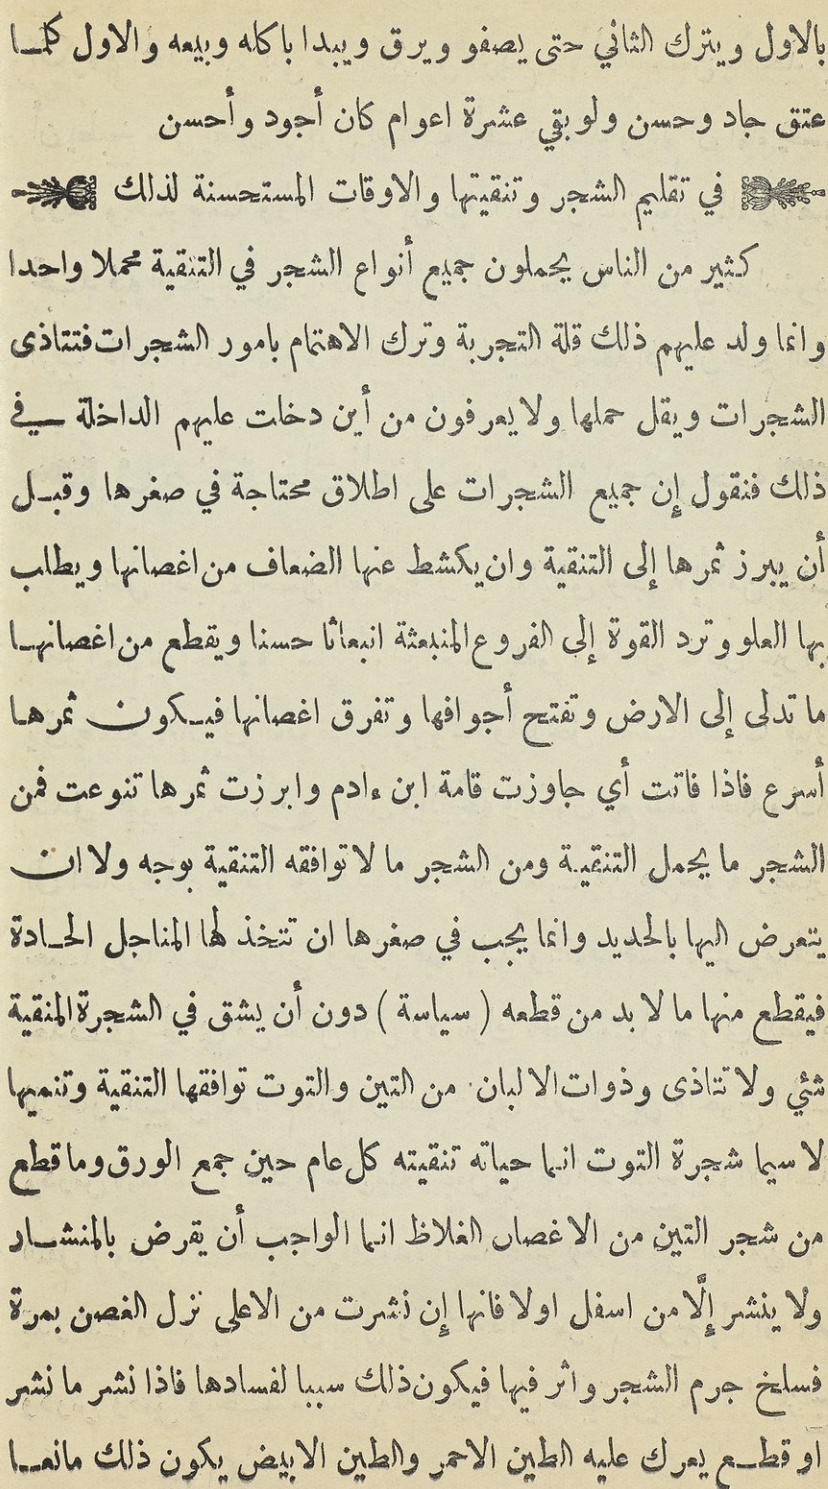 بالاول ويترك الثاني حتى يصفو ويرق ويبدا باكله وبيعه والاول كلما
عتق جاد وحسن ولو بقي عشرة اعوام كان أجود وأحسن
في تقليم الشجر وتنقيتها والاوقات المستحسنة لذلك
كثير من الناس يحملون جميع أنواع الشجر في التنقية محملا واحدا
وانما ولد عليهم ذلك قلة التجربة وترك الاهتمام بامور الشجرات فتتاذى
الشجرات ويقل حملها ولا يعرفون من أين دخلت عليهم الداخلة في
ذلك فنقول إن جميع الشجرات على اطلاق محتاجة في صغرها وقبل
أن يبرز ثمرها إلى التنقية وان يكشط عنها الضعاف من اغصانها ويطلب
بها العلو وترد القوة إلى الفروع المنبعثة انبعاثا حسنا ويقطع من اغصانها
ما تدلى إلى الارض وتفتح أجوافها وتفرق اغصانها فيكون ثمرها
أسرع فاذا فاتت أي جاوزت قامة ابن ءادم وابرزت ثمرها تنوعت فمن
الشجر ما يحمل التنقية ومن الشجر ما لا توافقه التنقية بوجه ولا ان
يتعرض اليها بالحديد وانما يجب في صغرها ان تتخذ لها المناجل الحادة
فيقطع منها ما لا بد من قطعه ( سياسة ) دون أن يشق في الشجرة المنقية
شئي ولا تتاذى وذوات الالبان من التين والتوت توافقها التنقية وتنميها
لا سيما شجرة التوت انما حياته تنقيته كل عام حين جمع الورق وما قطع
من شجر التين من الاغصان الغلاظ انما الواجب أن يقرض بالمنشار
ولا ينشر إلّا من اسفل اولا فانها إن نشرت من الاعلى نزل الغصن بمرة
فسلخ جرم الشجر واثر فيها فيكون ذلك سببا لفسادها فاذا نشر ما نشر
او قطع يعرك عليه الطين الاحمر والطين الابيض يكون ذلك مانعا